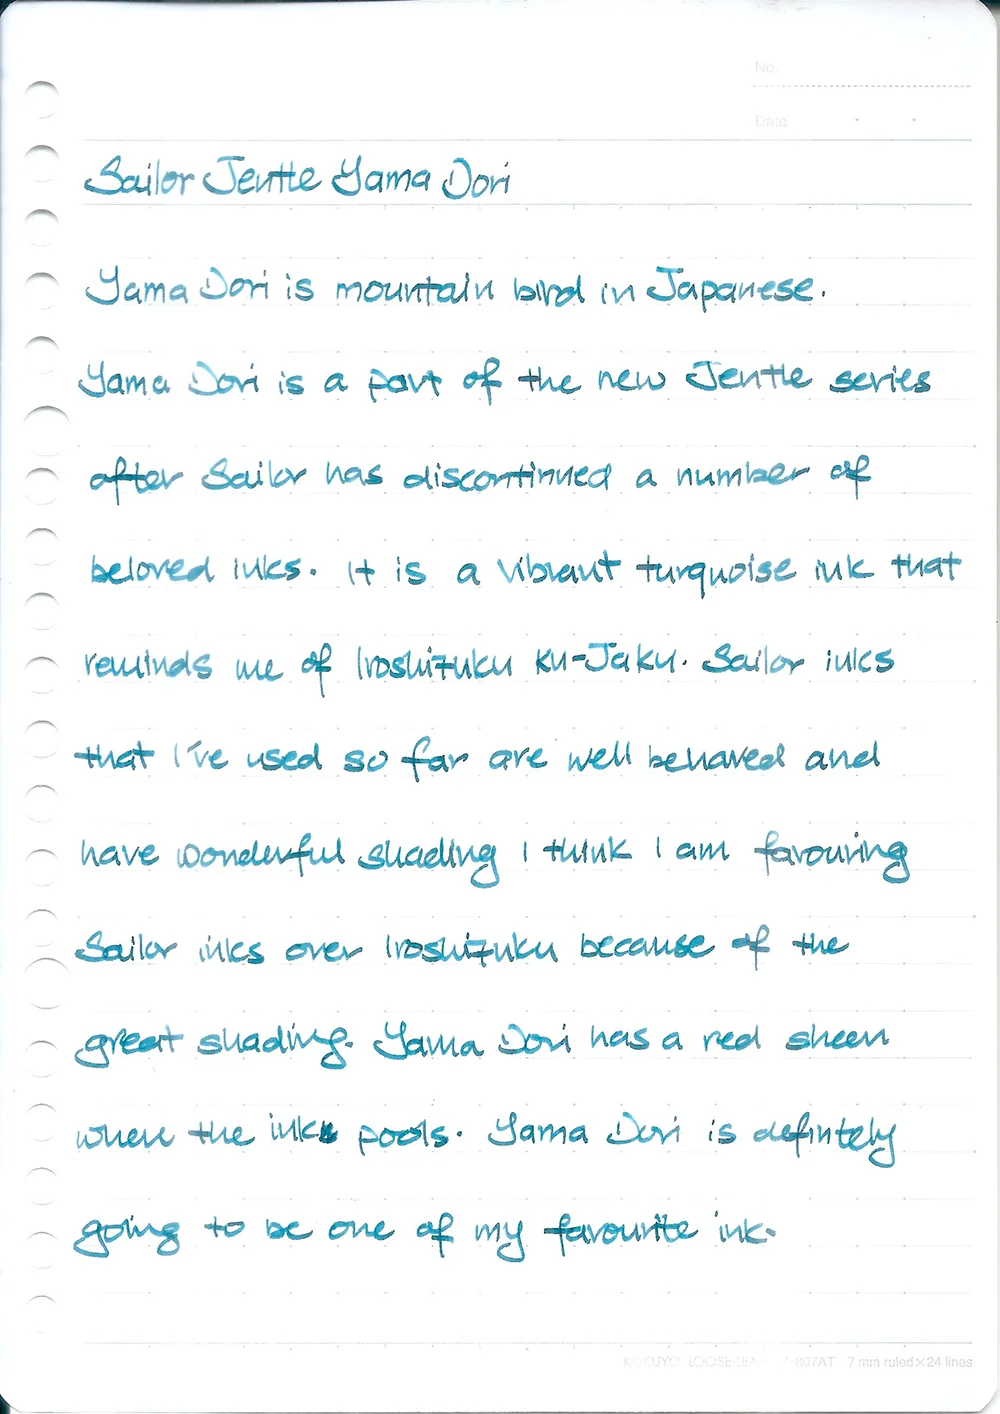 No.
Date
Sailor Jentle Yama Dori
Yama Dori is mountain bird in Japanese.
Yama Dori is a part of the new Jentle series
after Sailor has discontinued a number of
beloved inks. It is a vibrant turquoise ink that
reminds me of Iroshizuku Ku-Jaku. Sailor inks
that I've used so far are well behaved and
have wonderful shading I think I am favouring
Sailor inks over Iroshizuku because of the
great shading. Yama Dori has a red sheen
where the ink pools. Yama Dori is defintely
going to be one of my favourite ink.
KOKUYO LOOSE-LEAF 807AT 7 mm ruled×24 lines